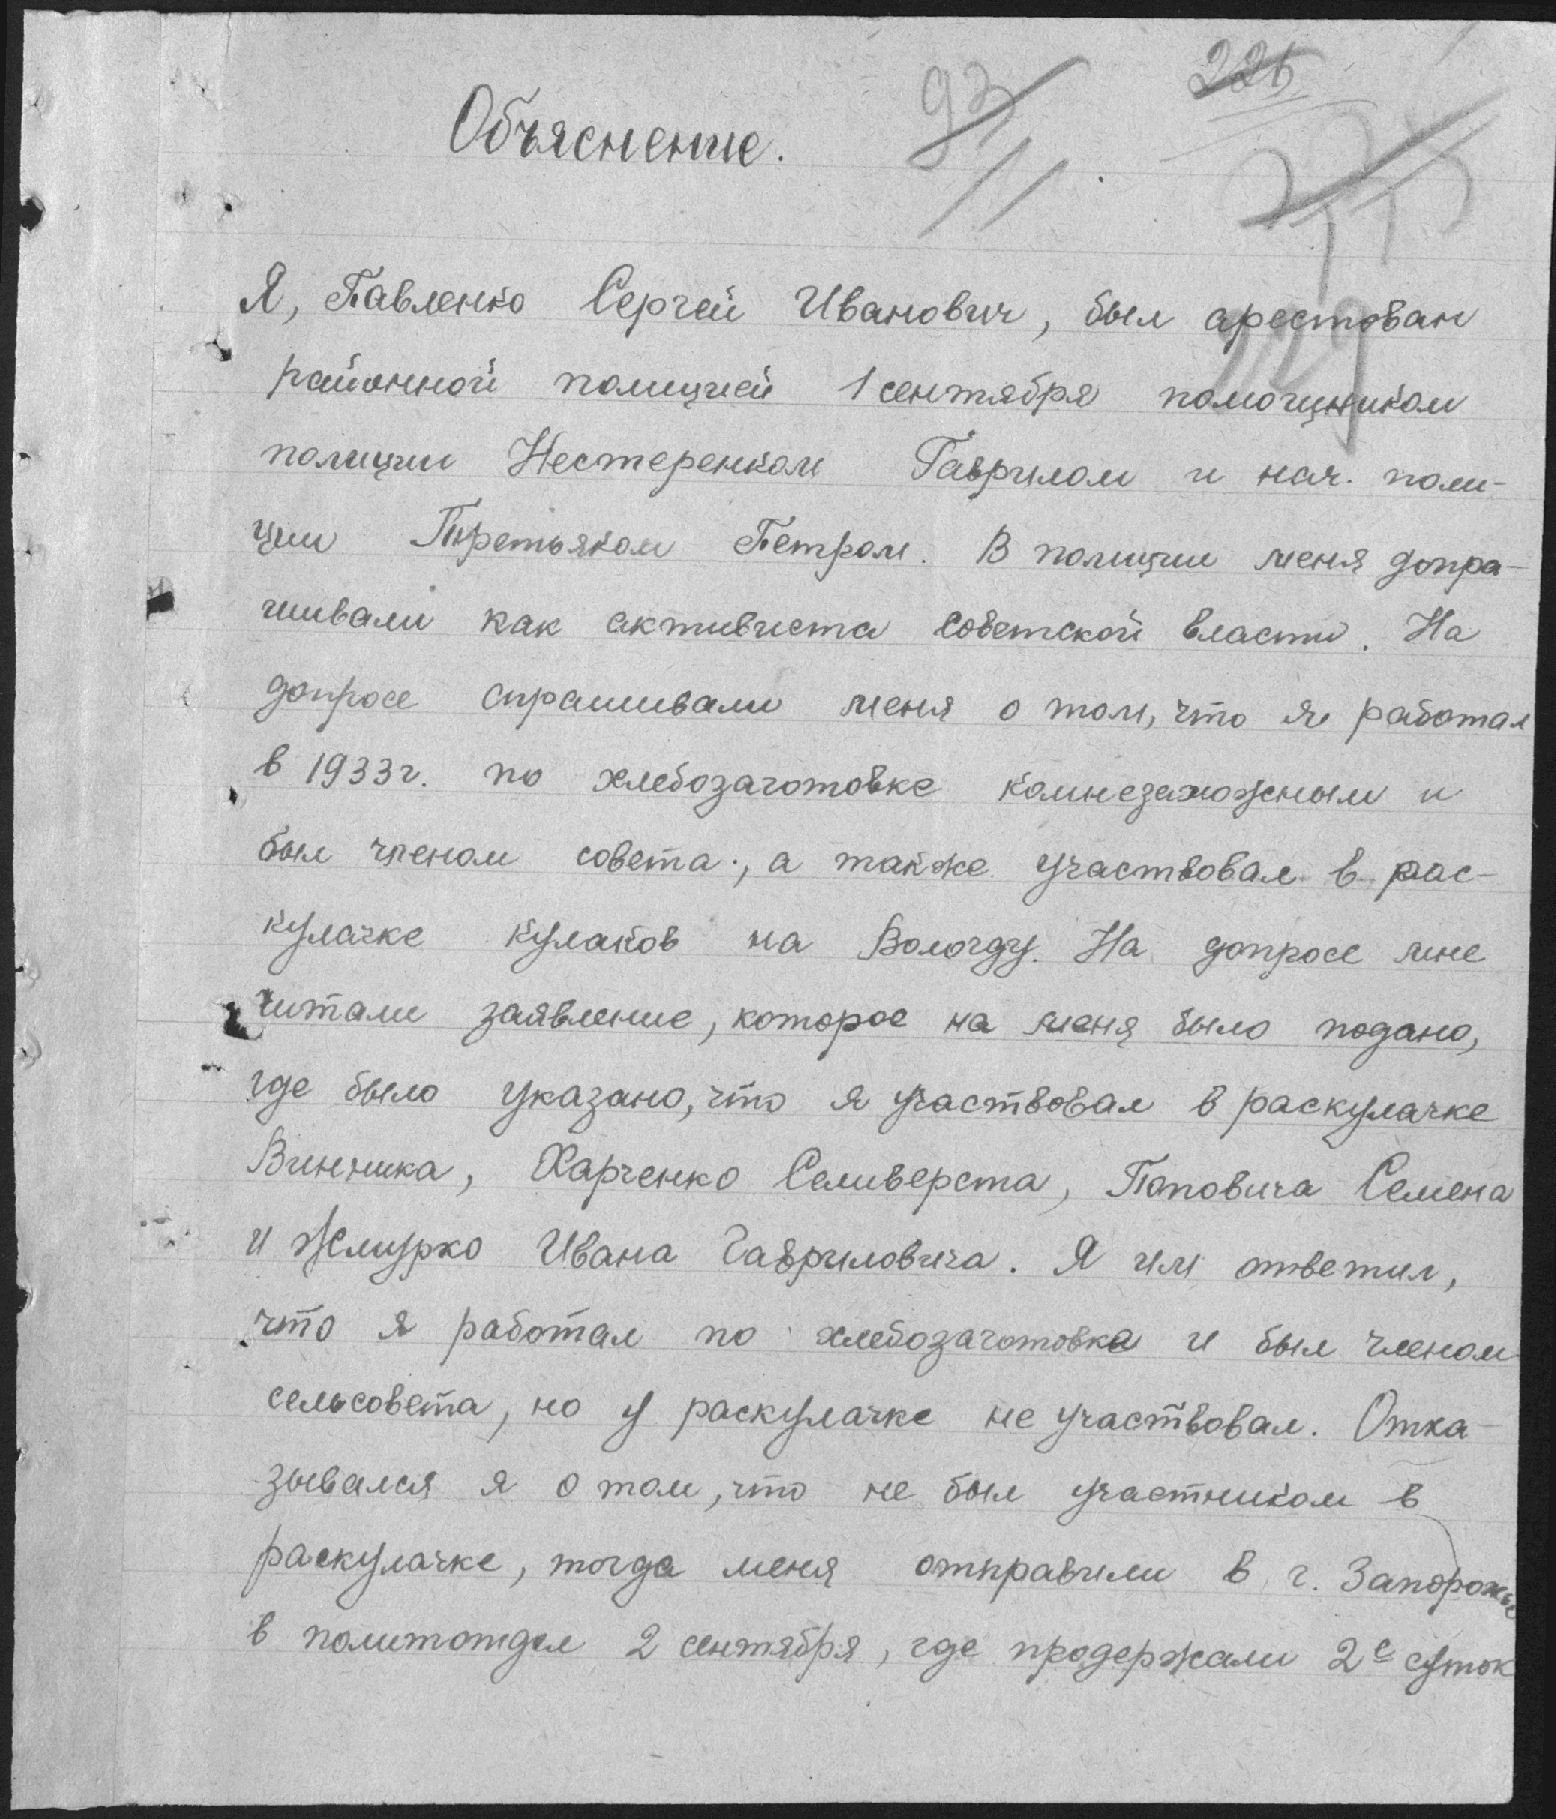 Объяснение.
93
226
Я, Павленко Сергей Иванович, был арестован
районной полицией 1 сентября помощником
полиции Нестеренком Гаврилом и нач. поли-
ции Третьяком Петром. В полиции меня допра-
шивали как активиста советской власти. На
допросе спрашивали меня о том, что я работал
в 1933 г. по хлебозаготовке комнезаможным и
был членом совета, а также участвовал в рас-
кулачке кулаков на Вологду. На допросе мне
читали заявление, которое на меня было подано,
где было указано, что я участвовал в раскулачке
Винника, Харченко Селиверста, Поповича Семена
и Жмурко Ивана Гавриловича. Я им ответил,
что я работал по хлебозаготовка и был членом
сельсовета, но у раскулачке не участвовал. Отка-
зывался я о том, что не был участником в
раскулачке, тогда меня отправили в г. Запорожье
в политотдел 2 сентября, где продержали 2е суток